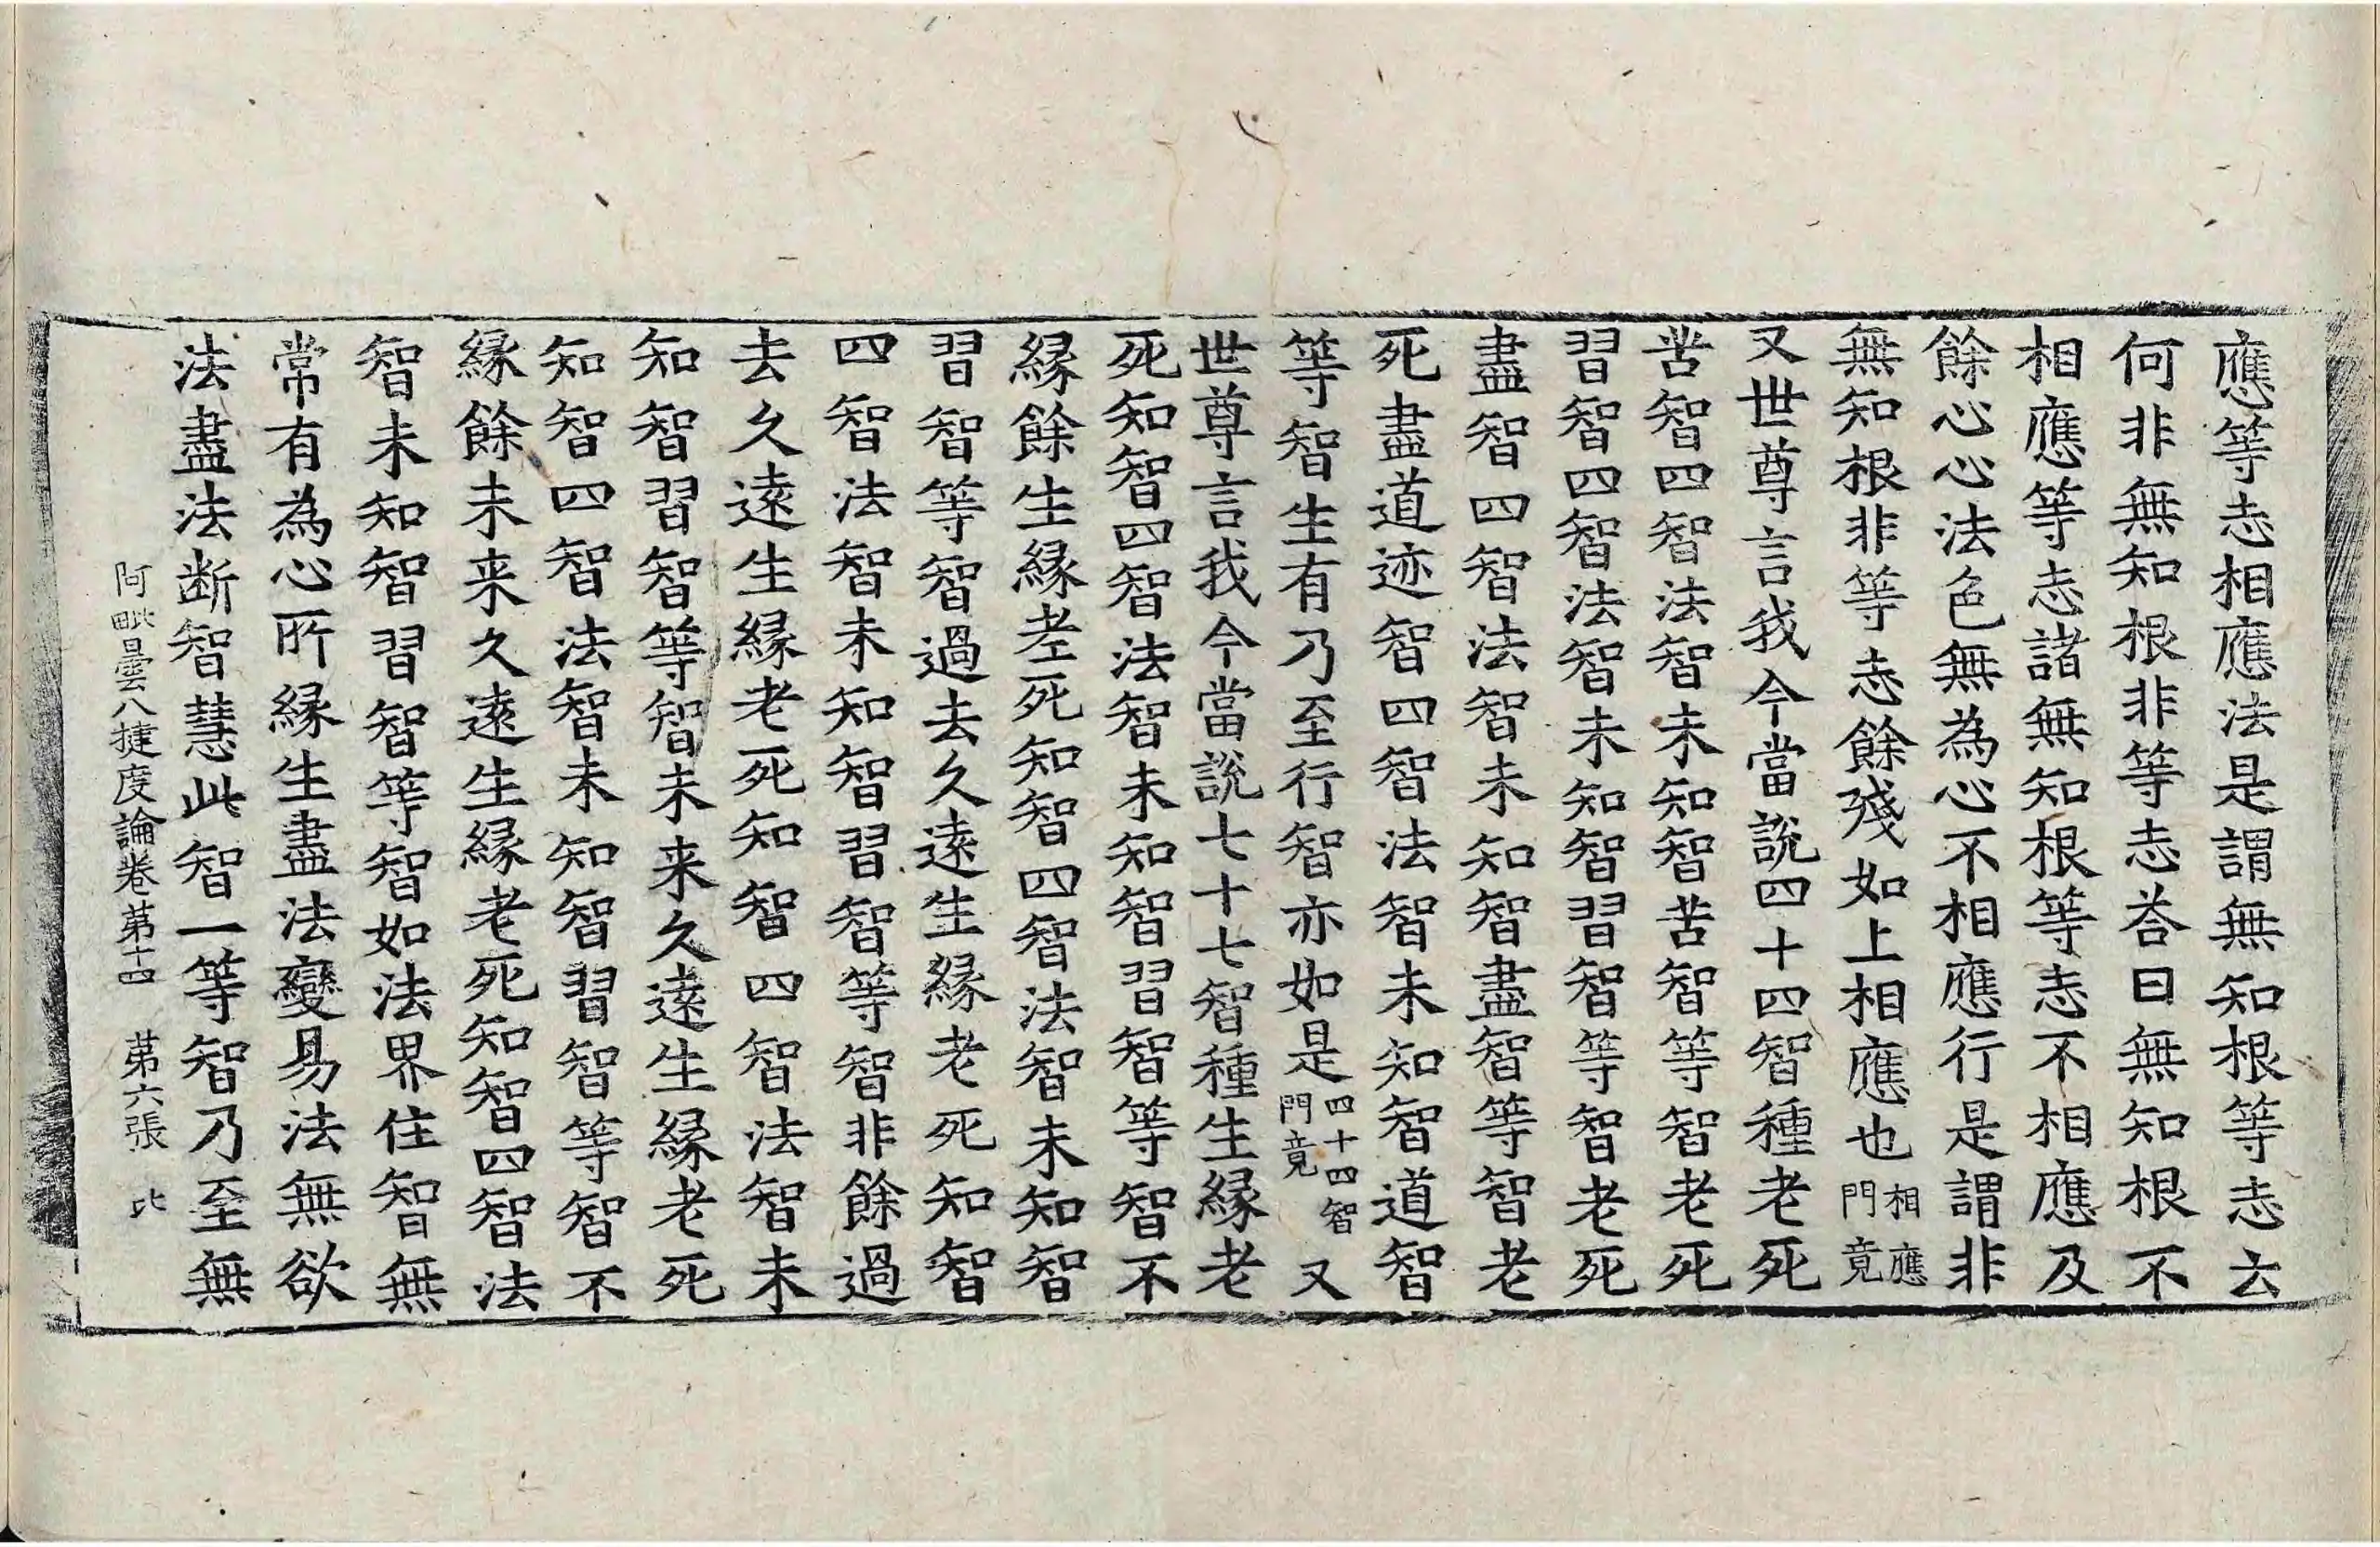 應等志相應法是謂無知根等志云
何非無知根非等志荅曰無知根不
相應等志諸無知根等志不相應及
餘心心法色無為心不相應行是謂非
無知根非等志餘殘如上相應也相應門竟
又世尊言我今當說四十四智種老死
苦智四智法智未知智苦智等智老死
習智四智法智未知智習智等智老死
盡智四智法智未知智盡智等智老
死盡道迹智四智法智未知智道智
等智生有乃至行智亦如是四十四智門竟又
世尊言我今當說七十七智種生縁老
死知智四智法智未知智習智等智不
縁餘生縁老死知智四智法智未知智
習智等智過去久遠生縁老死知智
四智法智未知智習智等智非餘過
去久遠生縁老死知智四智法智未
知智習智等智未来久遠生縁老死
知智四智法智未知智習智等智不
縁餘未来久遠生縁老死知智四智法
智未知智習智等智如法界住智無
常有為心所縁生盡法變易法無欲
法盡法断智慧此智一等智乃至無
阿毗曇八揵度論卷苐十四 苐六張 比